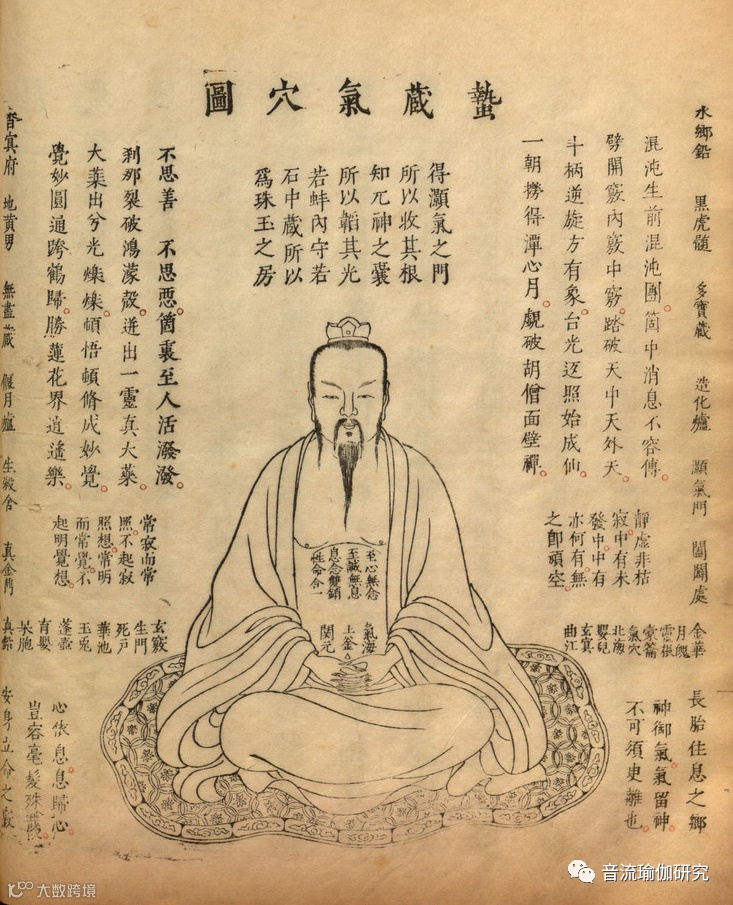 蟄藏氣穴圖
水鄉鉛 黑虎髓 多寶藏 造化爐 灝氣門 闔闢處 金華 長胎住息之鄉
混沌生前混沌團。箇中消息不容傳。
劈開竅內竅中竅。踏破天中天外天。
斗柄逆旋方有象。台光返照始成仙。
一朝撈得潭心月。覷破胡僧面壁禪。
得灝氣之門
所以收其根
知元神之囊
所以韜其光
若蚌內守若
石中藏所以
爲珠玉之房
不思善 不思惡。箇裏至人活潑潑。
刹那裂破鴻濛殼。迸出一靈真大藥。
大藥出兮光爍爍。頓悟頓脩成妙覺。
覺妙圓通跨鶴歸。勝蓮花界逍遙樂。
靜虛非枯
寂。中有未
發。中中有
亦何有。無
之卽頑空。
至心無念
至誠無息
息念雙銷
性命合一
常寂而常
照。不起寂
照想。常明
而常覺。不
起明覺想。
月魄
靈根
橐籥
氣穴
北海
嬰兒
玄冥
曲江
氣海
上釜
関元
玄竅
生門
死戸
華池
玉兎
蓬壺
育嬰
長胞
神御氣。氣留神。
不可須更離也。
心依息。息歸心。
豈容毫髮殊
杳冥府 地黃男 無盡藏 偃月爐 生殺舍 真金門 真鉛 安身立命之竅
音流瑜伽研究
大数跨境